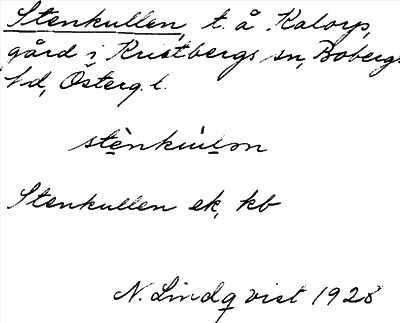 Stenkullen, t. å Kalorp,
gård i Kristbergs sn, Bobergs
hd, Österg. l.
stènkúlǝn
Stenkullen ek, kb
N. Lindqvist 1928